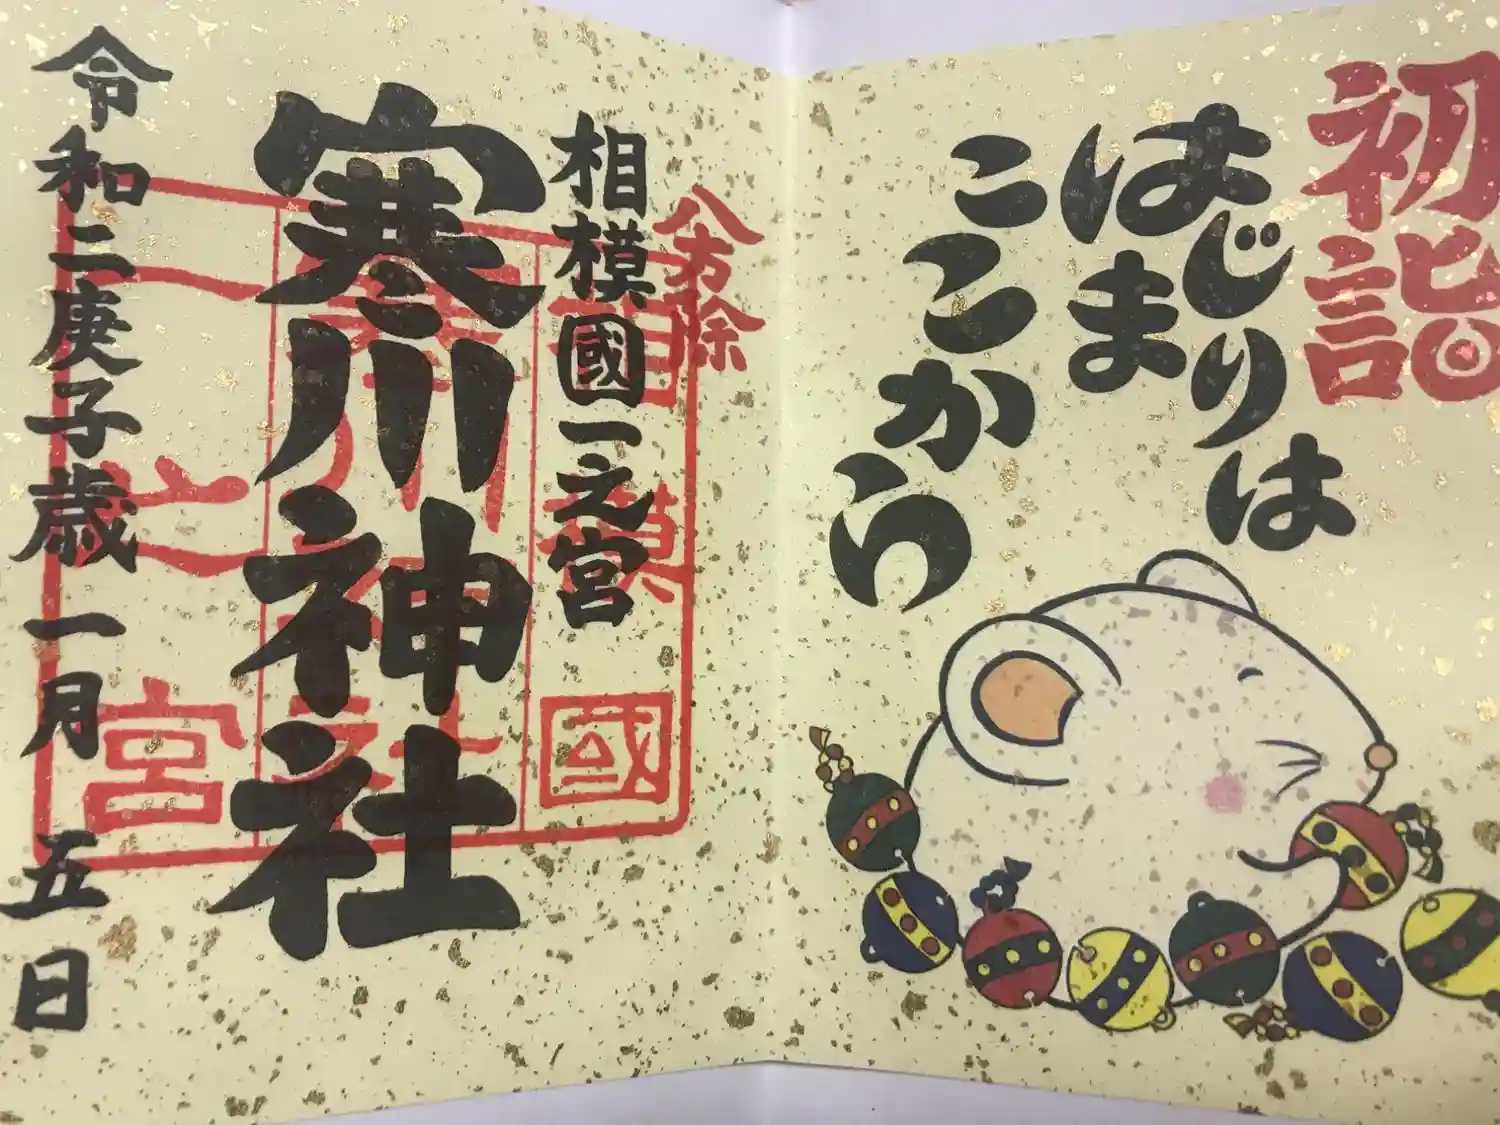 初詣
はじまりは
はま
ここから
八方除
相模國一之宮
寒川神社
令和二庚子歳一月五日
相模國
寒川神社
一之宮